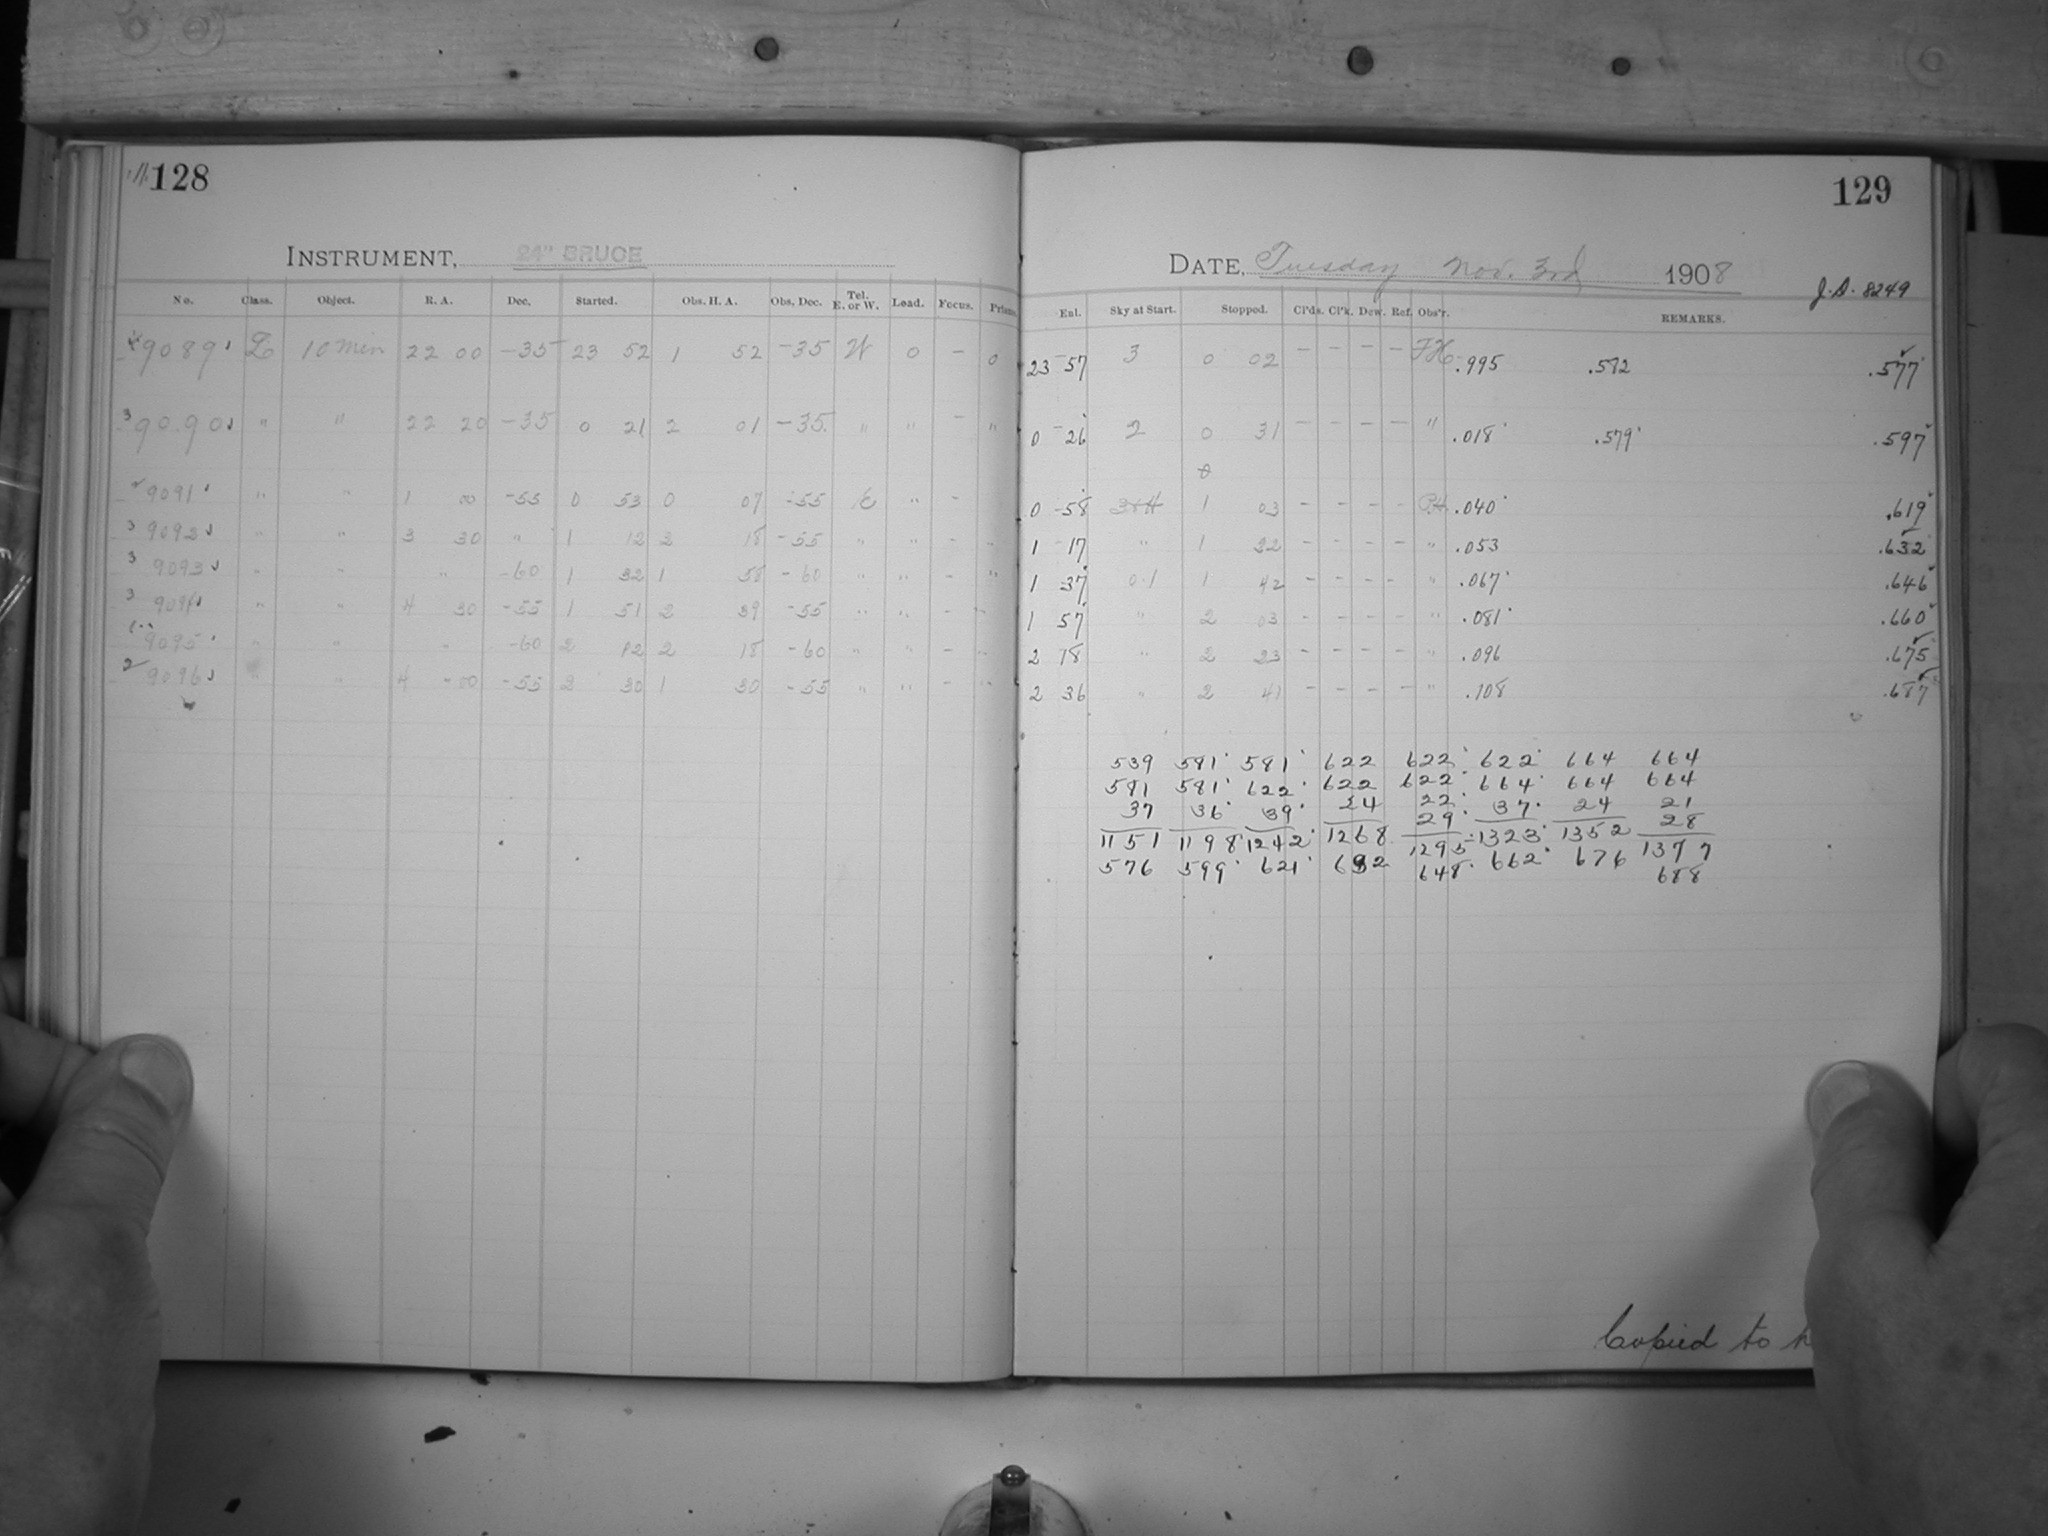 128
INSTRUMENT, 24" BRUCE
No. Class. Object. R. A. Dec. Started. Obs. H. A. Obs. Dec. Tel. E. or W. Lead. Focus. Prism.
9089 L 10 min 22 00 -35 23 52 1 52 -35 W 0 - 0
3 9090 " " 22 20 -35 0 21 2 01 -35 " " - "
2 9091 " " 1 00 -55 0 53 0 07 -55 E " -
3 9092 " " 3 30 " 1 12 2 18 -55 " " - "
3 9093 " " " -60 1 32 1 58 -60 " " - "
3 9094 " " 4 30 -55 1 51 2 39 -55 " " - "
9095 " " " -60 2 12 2 18 -60 " " - "
2 9096 " " 4 00 -55 2 30 1 30 -55 " " - "
129
DATE, Tuesday Nov. 3rd 1908
J.D. 8249
Enl. Sky at Start. Stopped. Cl'ds. Cl'k. Dew. Ref. Obs'r. REMARKS.
23 57 3 0 02 - - - - F.H. .995 .582 .577
0 26 2 0 31 - - - - " .018 .579 .597
0
0 58 1 03 - - - - .040 .619
1 17 " 1 22 - - - - " .053 .632
1 37 0.1 1 42 - - - - " .067 .646
1 57 " 2 03 - - - - " .081 .660
2 18 " 2 23 - - - - " .096 .675
2 36 " 2 41 - - - - " .108 .687
539 581 581 622 622 622 664 664
581 581 622 622 622 664 664 664
37 36 39 24 22 37 24 21
29 28
1151 1198 1242 1268 1295 1323 1352 1377
576 599 621 632 648 662 676 688
Copied to